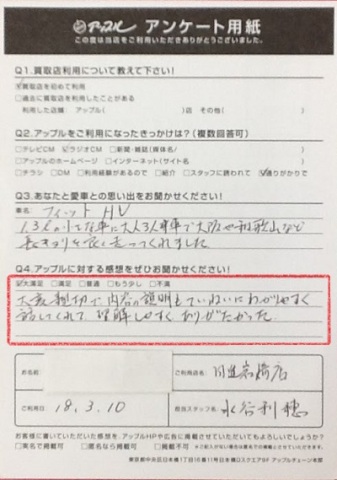 アップル アンケート用紙
この度は当店をご利用いただきありがとうございました。
Q1.買取店利用について教えて下さい!
☑買取を初めて利用
□過去に買取を利用したことがある
利用した店舗: アップル( )店 その他( )
Q2.アップルをご利用になったきっかけは?(複数回答可)
□テレビCM ☑ラジオCM □新聞・雑誌(媒体名/ )
□アップルのホームページ □インターネット(サイト名 )
□チラシ □DM □利用経験があるので □紹介 □スタッフに誘われて ☑通りがかりで
Q3.あなたと愛車との思い出をお聞かせください!
車名: フィット HV
1.3Lの小さな車に大人3人乗車で大阪や和歌山など
長きょりを良く走ってくれました
Q4.アップルに対する感想をぜひお聞かせください!
☑大満足 □満足 □普通 □もう少し □不満
大変親切で、内容の説明もていねいにわかりやすく
話してくれて、理解しやすく ありがたかった
お名前
ご利用店名:
ご利用日 18.3.10
担当スタッフ名: 水谷利穂
お客様に書いていただいた感想を、アップルHPや広告に掲載させていただいてもよろしいでしょうか?
□実名で掲載可 □匿名なら掲載可 □掲載不可
東京都中央区日本橋1丁目16番11号日本橋DスクエアBF アップルチェーン本部